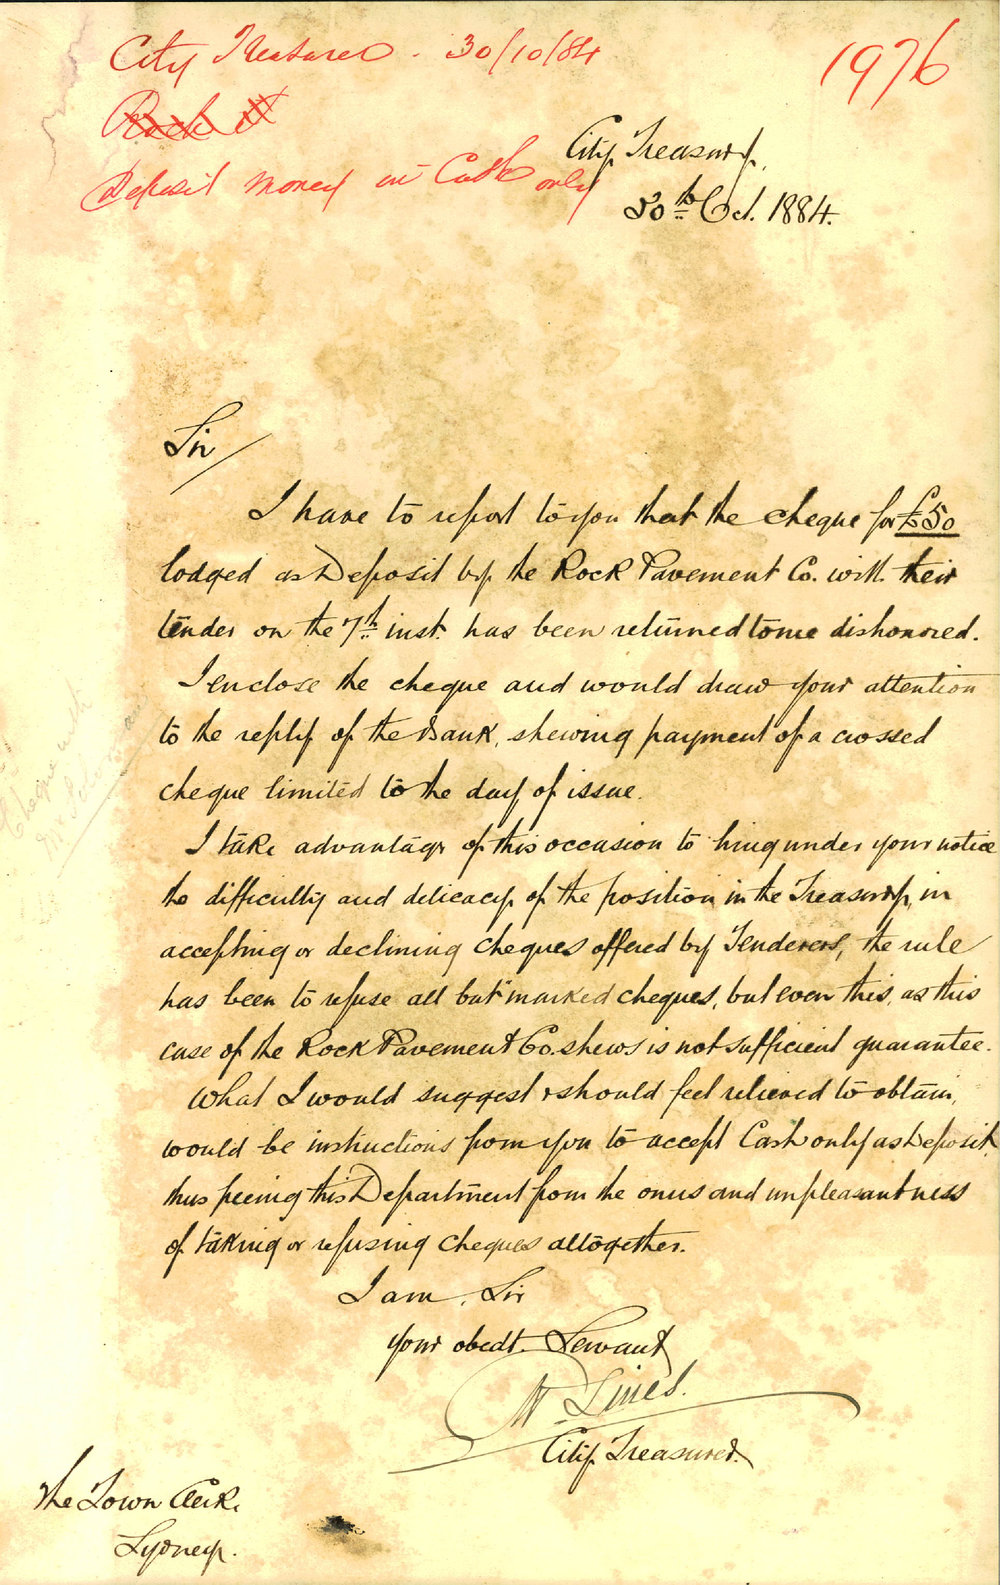 City Treasurer. 30/10/84
1976
Rock
Deposit money in Cash only
City Treasury,
30th Oct. 1884.
Sir
I have to report to you that the cheque for £50
lodged as Deposit by the Rock Pavement Co. with their
tender on the 7th inst. has been returned to me dishonored.
I enclose the cheque and would draw your attention
to the reply of the Bank, shewing payment of a crossed
cheque limited to the day of issue.
I take advantage of this occasion to bring under your notice
the difficulty and delicacy of the position in the Treasury, in
accepting or declining cheques offered by Tenderers, the rule
has been to refuse all but "marked" cheques, but even this, as this
case of the Rock Pavement Co. shews is not sufficient guarantee.
What I would suggest & should feel relieved to obtain,
would be instructions from you to accept Cash only as Deposit,
thus freeing this Department from the onus and unpleasantness
of taking or refusing cheques altogether.
I am, Sir
Your obedt. Servant
Lines.
City Treasurer.
The Town Clerk.
Sydney.
Cheque with